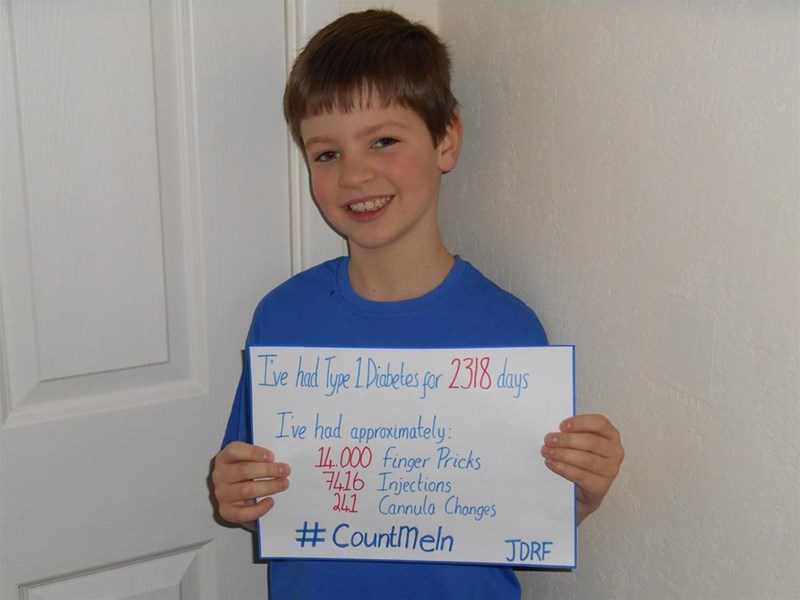 I've had Type 1 Diabetes for 2318 days
I've had approximately:
14.000 Finger Pricks
7416 Injections
241 Cannula Changes
#CountMeIn
JDRF